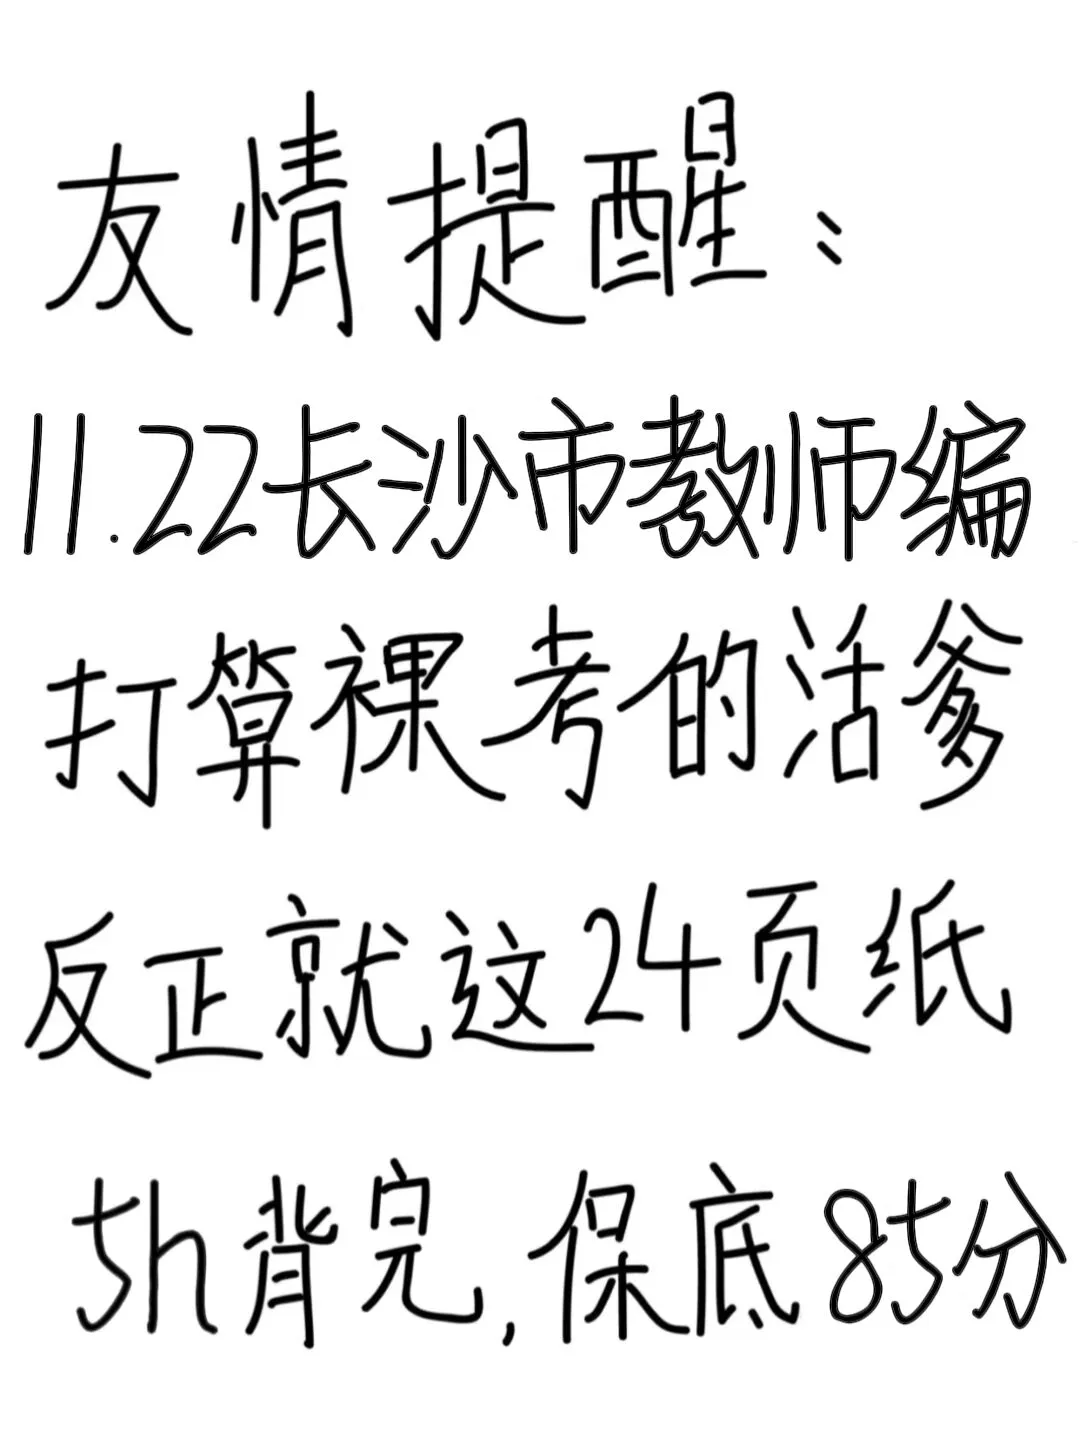 友情提醒：
11.22长沙市教师编
打算裸考的活爹
反正就这24页纸
5h背完,保底85分